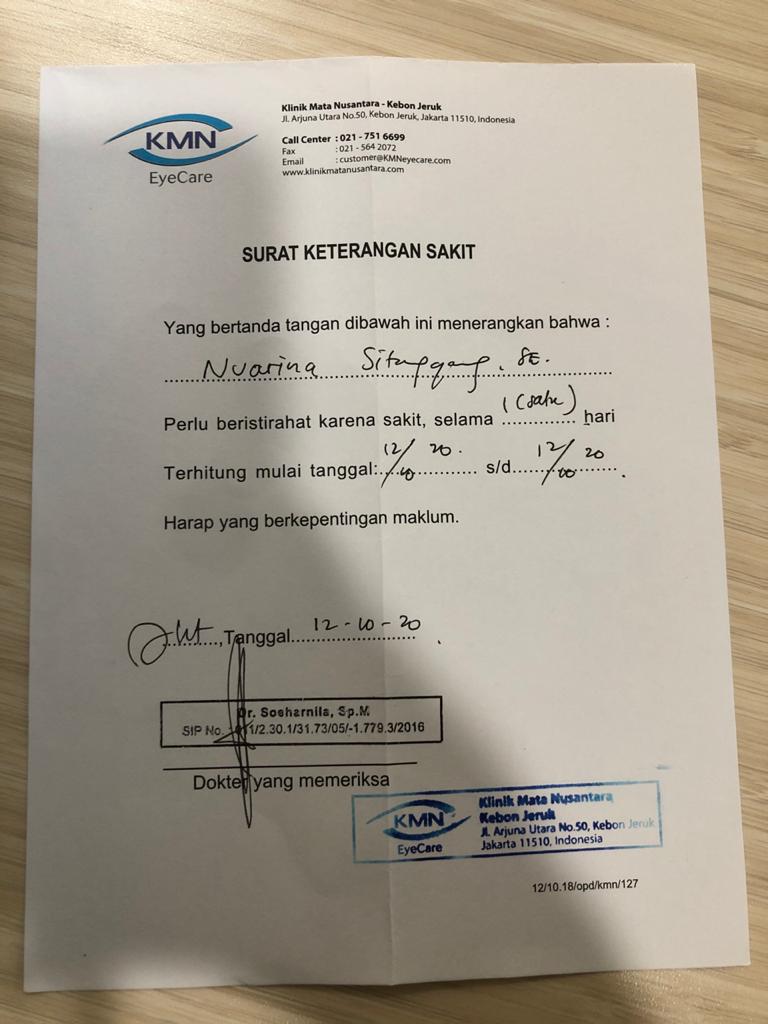 KMN
EyeCare
Klinik Mata Nusantara - Kebon Jeruk
Jl. Arjuna Utara No.50, Kebon Jeruk, Jakarta 11510, Indonesia
Call Center : 021 - 751 6699
Fax : 021 - 564 2072
Email : customer@KMNeyecare.com
www.klinikmatanusantara.com
SURAT KETERANGAN SAKIT
Yang bertanda tangan dibawah ini menerangkan bahwa :
Nuarina Situnggang, SE.
Perlu beristirahat karena sakit, selama 1 (satu) hari
Terhitung mulai tanggal: 12/10 20. s/d 12/10 20.
Harap yang berkepentingan maklum.
Jkt, Tanggal 12-10-20
Dr. Sosharnila, Sp.M
SIP No. 1/2.30.1/31.73/05/-1.779.3/2016
Dokter yang memeriksa
KMN
EyeCare
Klinik Mata Nusantara
Kebon Jeruk
Jl. Arjuna Utara No.50, Kebon Jeruk
Jakarta 11510, Indonesia
12/10.18/opd/kmn/127